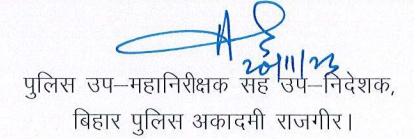 20/11/23
पुलिस उप–महानिरीक्षक सह उप–निदेशक,
बिहार पुलिस अकादमी राजगीर।